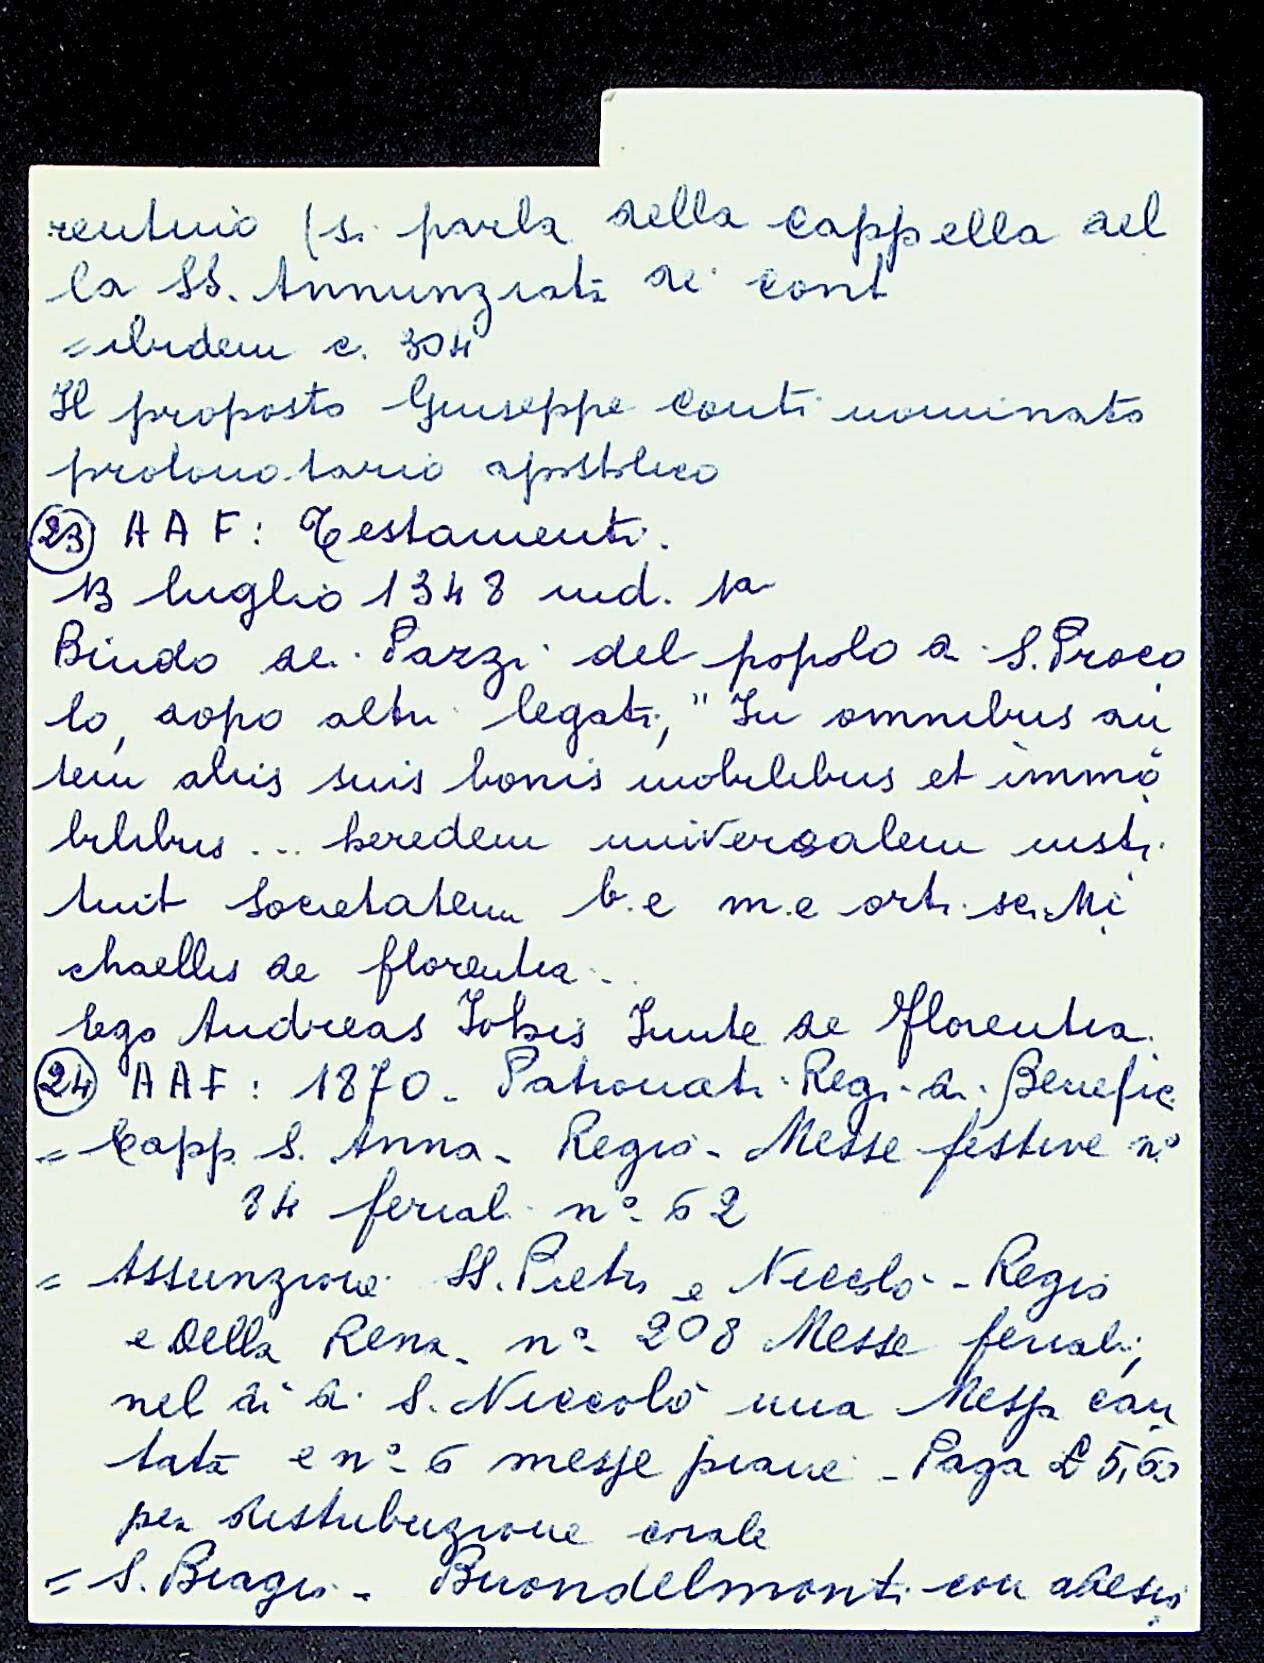 rentino (si parla della cappella del
la SS. Annunziata de' Conti
= ibidem c. 304
Il proposto Giuseppe Conti nominato
protonotario apostolico
(23) AAF: Testamenti.
13 luglio 1348 ind. 1a
Bindo de' Pazzi del popolo di S. Proco
lo, dopo altri legati, "In omnibus au
tem aliis suis bonis mobilibus et immo
bilibus ... heredem universalem insti
tuit societatem b.e m.e orti sci Mi
chaellis de florentia..
Ego Andreas Iohis Iunte de Florentia.
(24) AAF: 1870. Patronati Regi di Benefic
= Capp. S. Anna - Regio - Messe festive n.º
34 feriali nº 62
= Assunzione SS. Pietro e Niccolò - Regio
e Della Rena - nº 208 Messe feriali;
nel dì di S. Niccolò una Messa can
tata e nº 6 messe piane - Paga £ 5,60
per distribuzione corale
= S. Biagio - Buondelmonti con